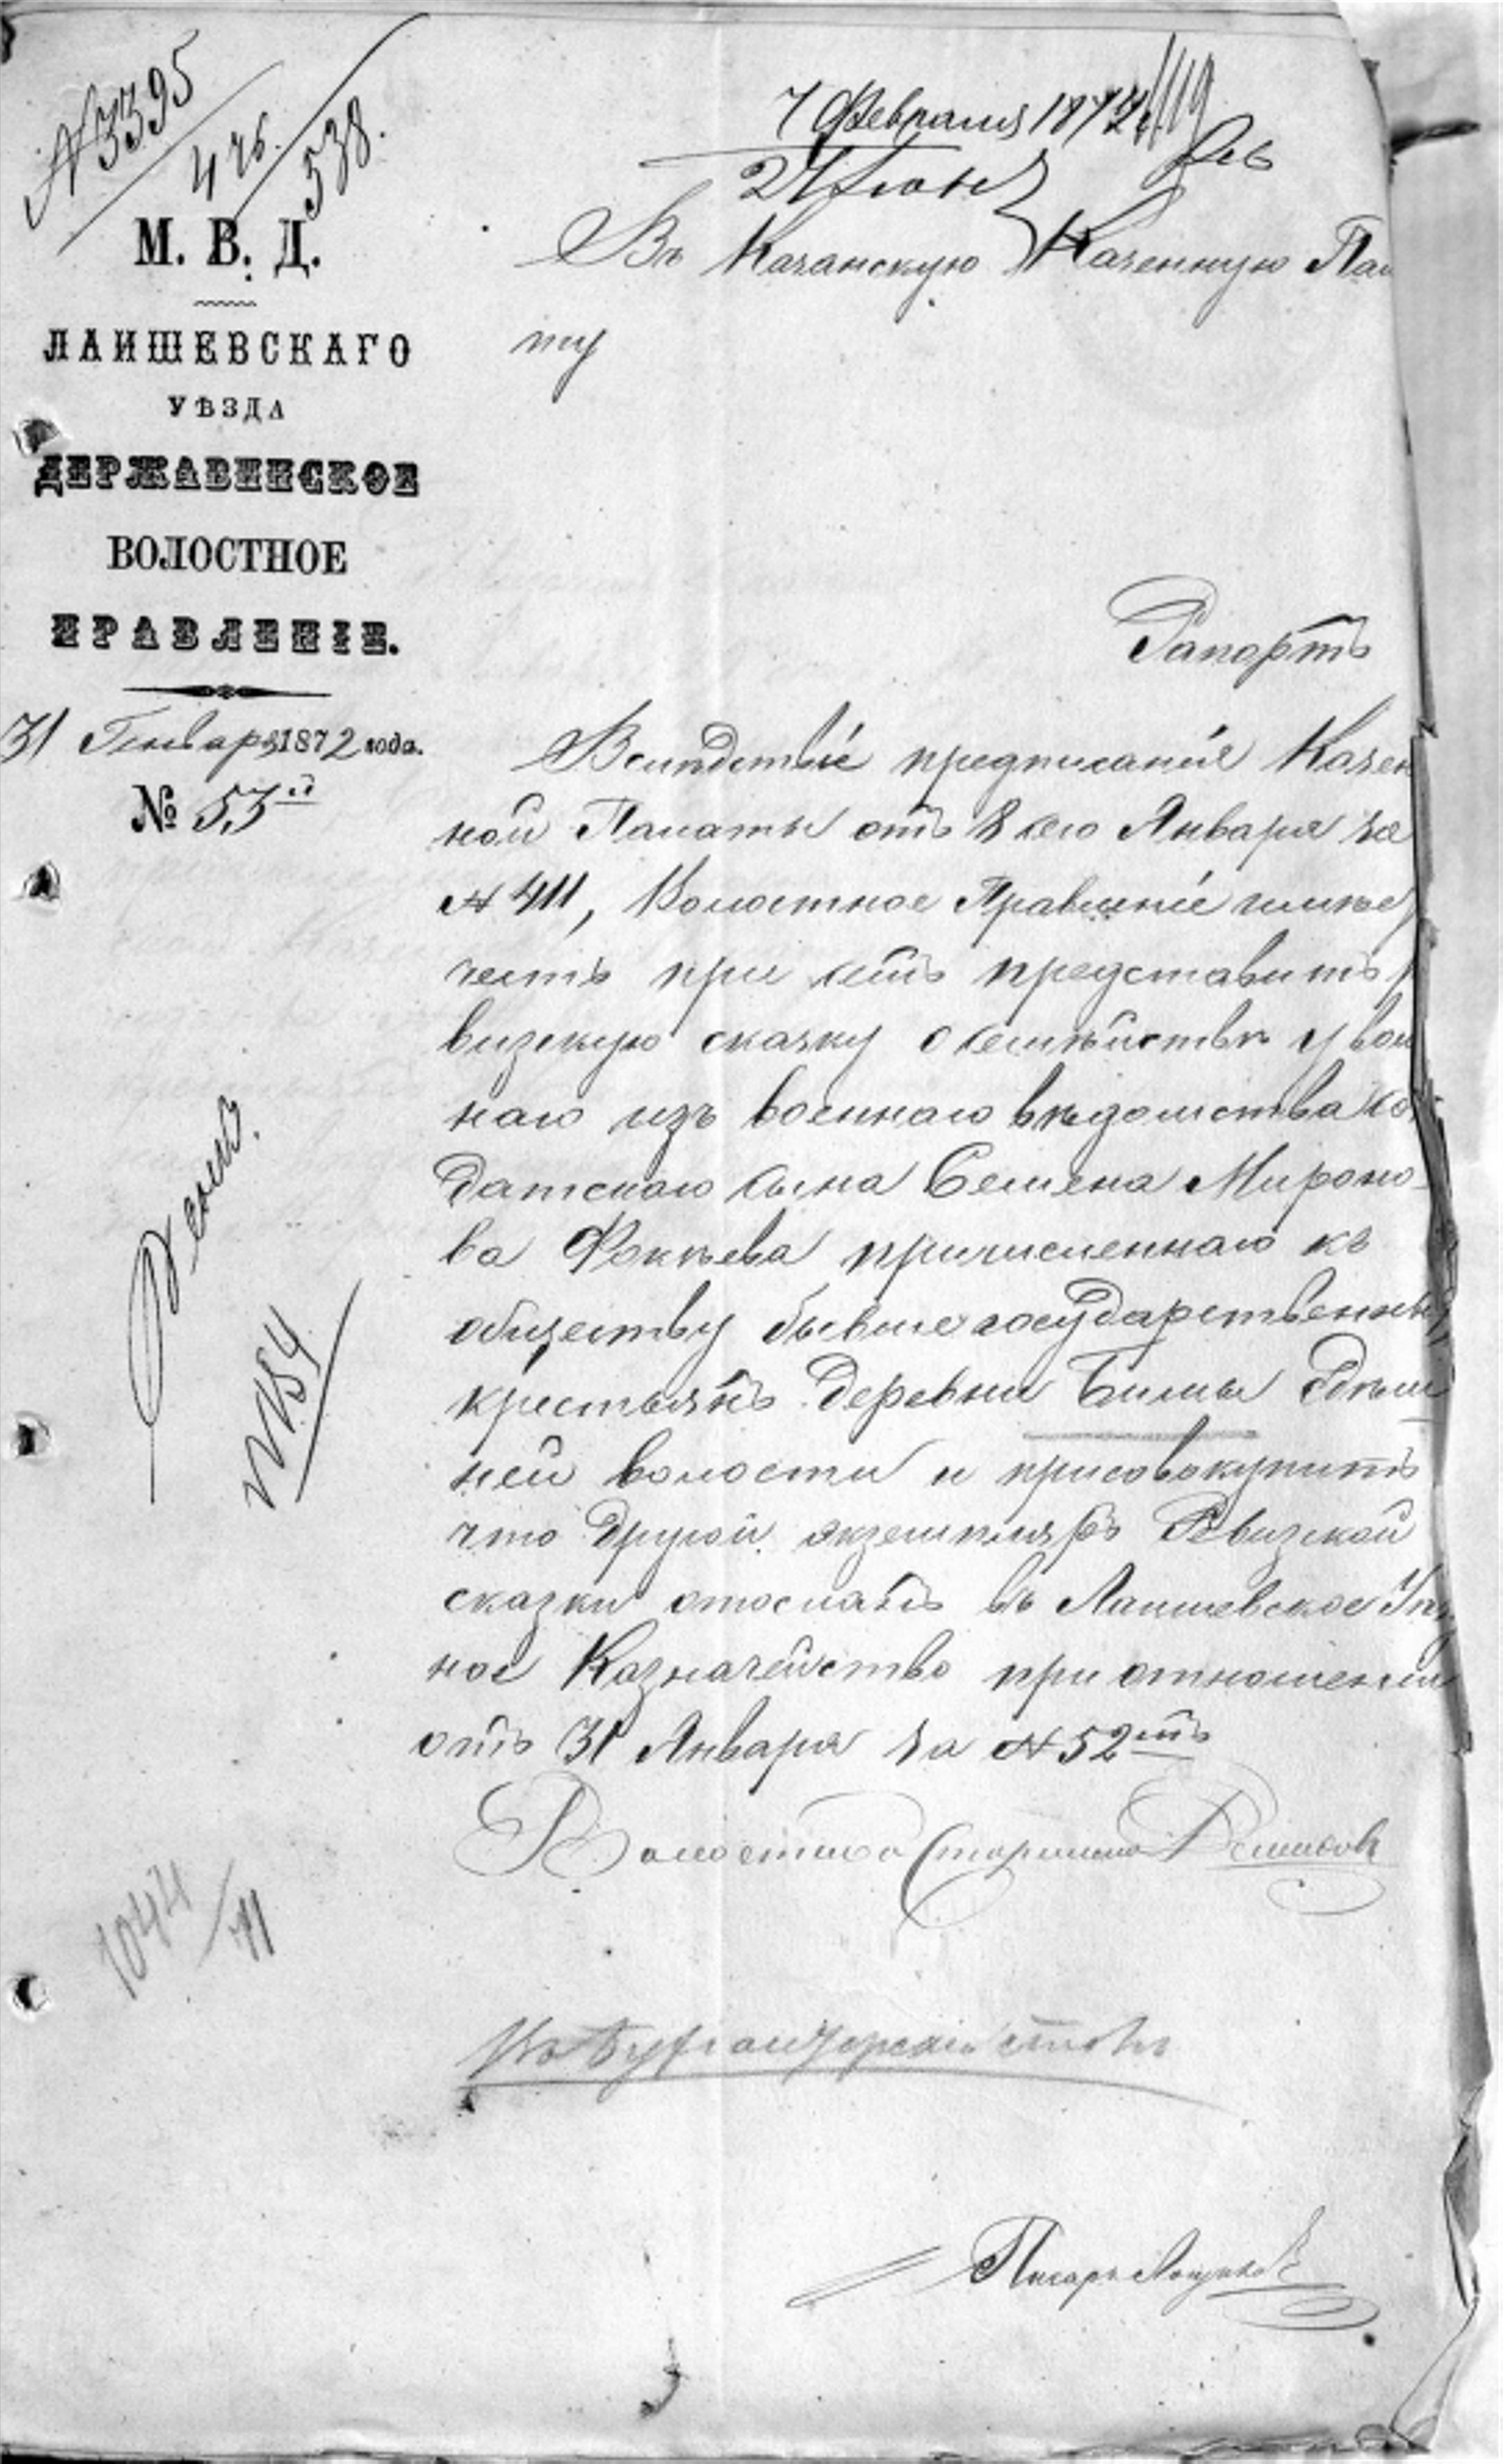 № 3395
4 чб.
538.
7 Февраля 1872
М. В. Д.
ЛАИШЕВСКАГО
УѢЗДА
ДЕРЖАВИНСКОЕ
ВОЛОСТНОЕ
ПРАВЛЕНІЕ.
31 Генваря 1872 года.
№ 53й
Въ Казанскую Казенную Пала
ту
Рапортъ
Вслѣдствіе предписанія Казен
ной Палаты отъ 8 сего Января за
№ 411, Волостное Правленіе имѣе
честь при семъ представить р
визскую сказку о семѣйствѣ уволь
наго изъ военнаго вѣдомства сол
датскаго сына Семена Мироно-
ва Фокѣева причисленнаго къ
обществу бывше государственны
крестьянъ деревни Бимы здѣш
ней волости и присовокупить
что другой экземпляръ Ревизской
сказки отосланъ въ Лаишевское Уѣзд
ное Казначейство при отношеніи
отъ 31 Января за № 52мъ
Волостной Старшина
Писарь
№ 184
1044/71